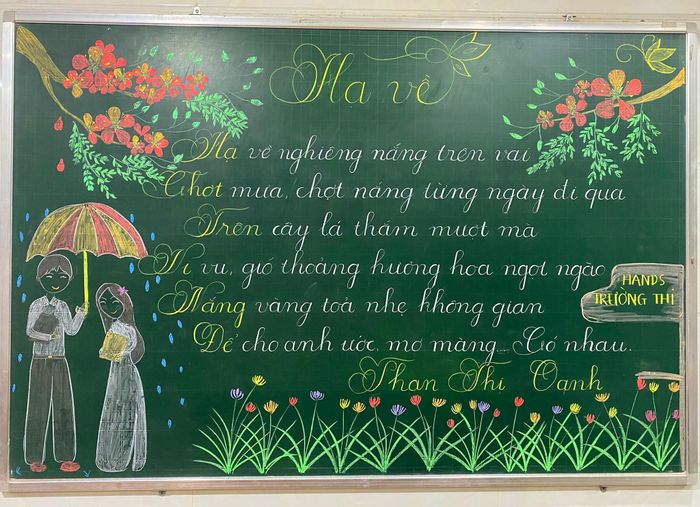 Hạ về
Hạ về nghiêng nắng trên vai
Chợt mưa, chợt nắng từng ngày đi qua
Trên cây lá thắm mượt mà
Vi vu, gió thoảng hương hoa ngọt ngào
Nắng vàng toả nhẹ không gian
Để cho anh ước, mơ màng... Có nhau.
Phan Thị Oanh
HANDS
TRƯỜNG THI